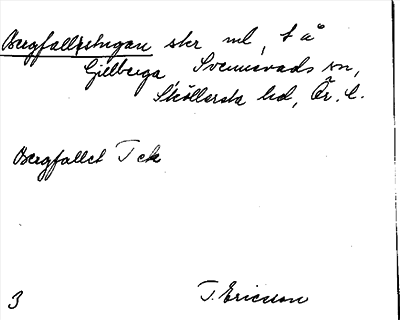 Bergfallstugan skr ml, t å
Gjelberga, Svennevads sn,
Sköllersta hd, Ör. l.
Bergfallet T ek
3 T. Ericsson